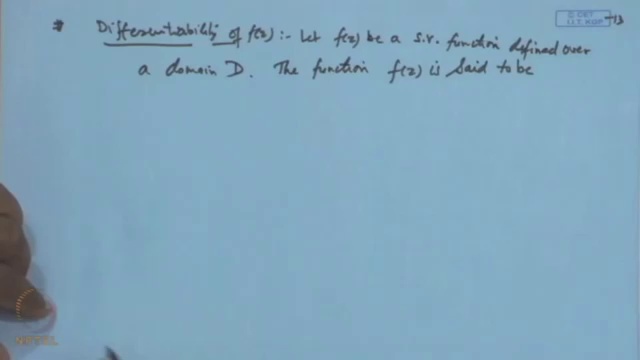 * Differentiability of f(z) :- Let f(z) be a s.v. function defined over
a domain D. The function f(z) is said to be
© CET
I.I.T. KGP
NPTEL